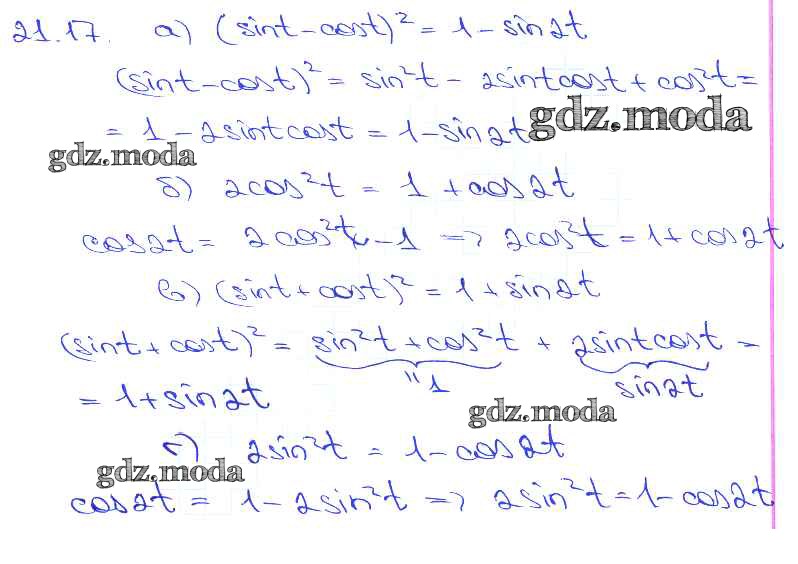 21.17. а) (sint - cost)² = 1 - sin2t
(sint - cost)² = sin²t - 2sintcost + cos²t =
= 1 - 2sintcost = 1 - sin2t gdz.moda
gdz.moda
б) 2cos²t = 1 + cos2t
cos2t = 2cos²t - 1 => 2cos²t = 1 + cos2t
в) (sint + cost)² = 1 + sin2t
(sint + cost)² = sin²t + cos²t + 2sintcost =
"1 sin2t
= 1 + sin2t
gdz.moda
г) 2sin²t = 1 - cos2t
gdz.moda
cos2t = 1 - 2sin²t => 2sin²t = 1 - cos2t